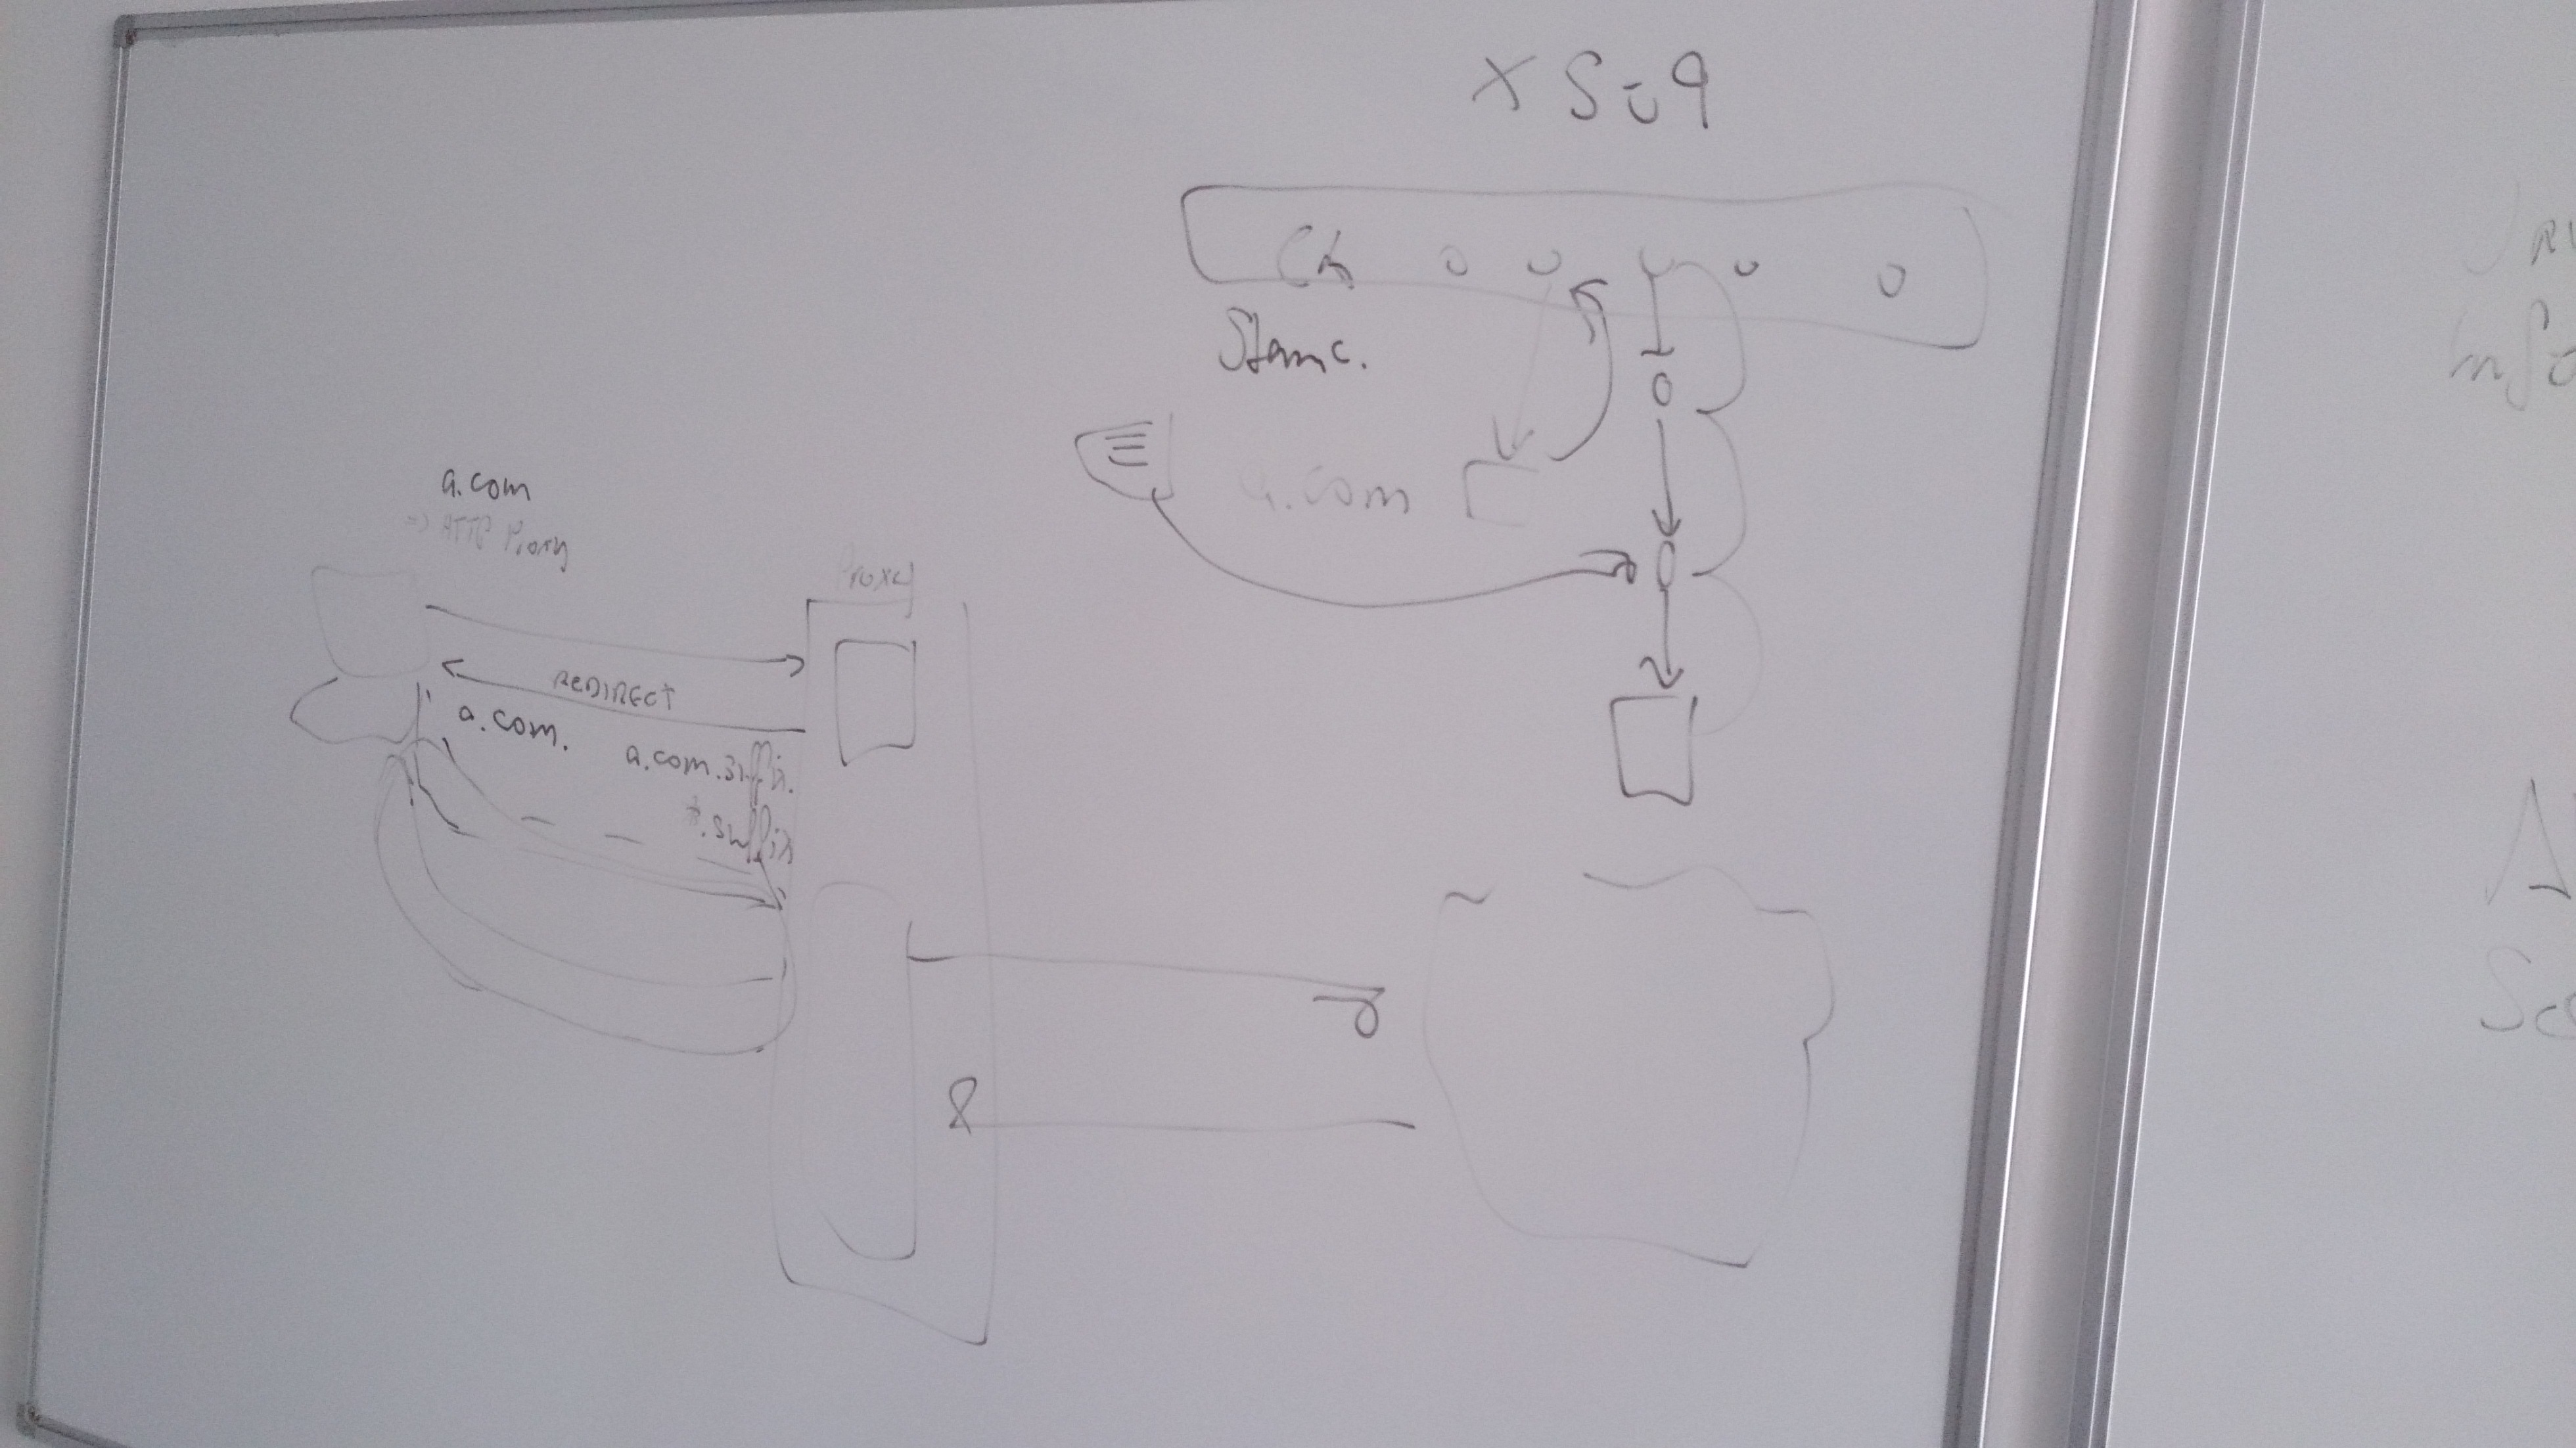 X509
CA
a.com
a.com
=> HTTP Proxy
Proxy
REDIRECT
a.com.
a.com.suffix.
*.suffix